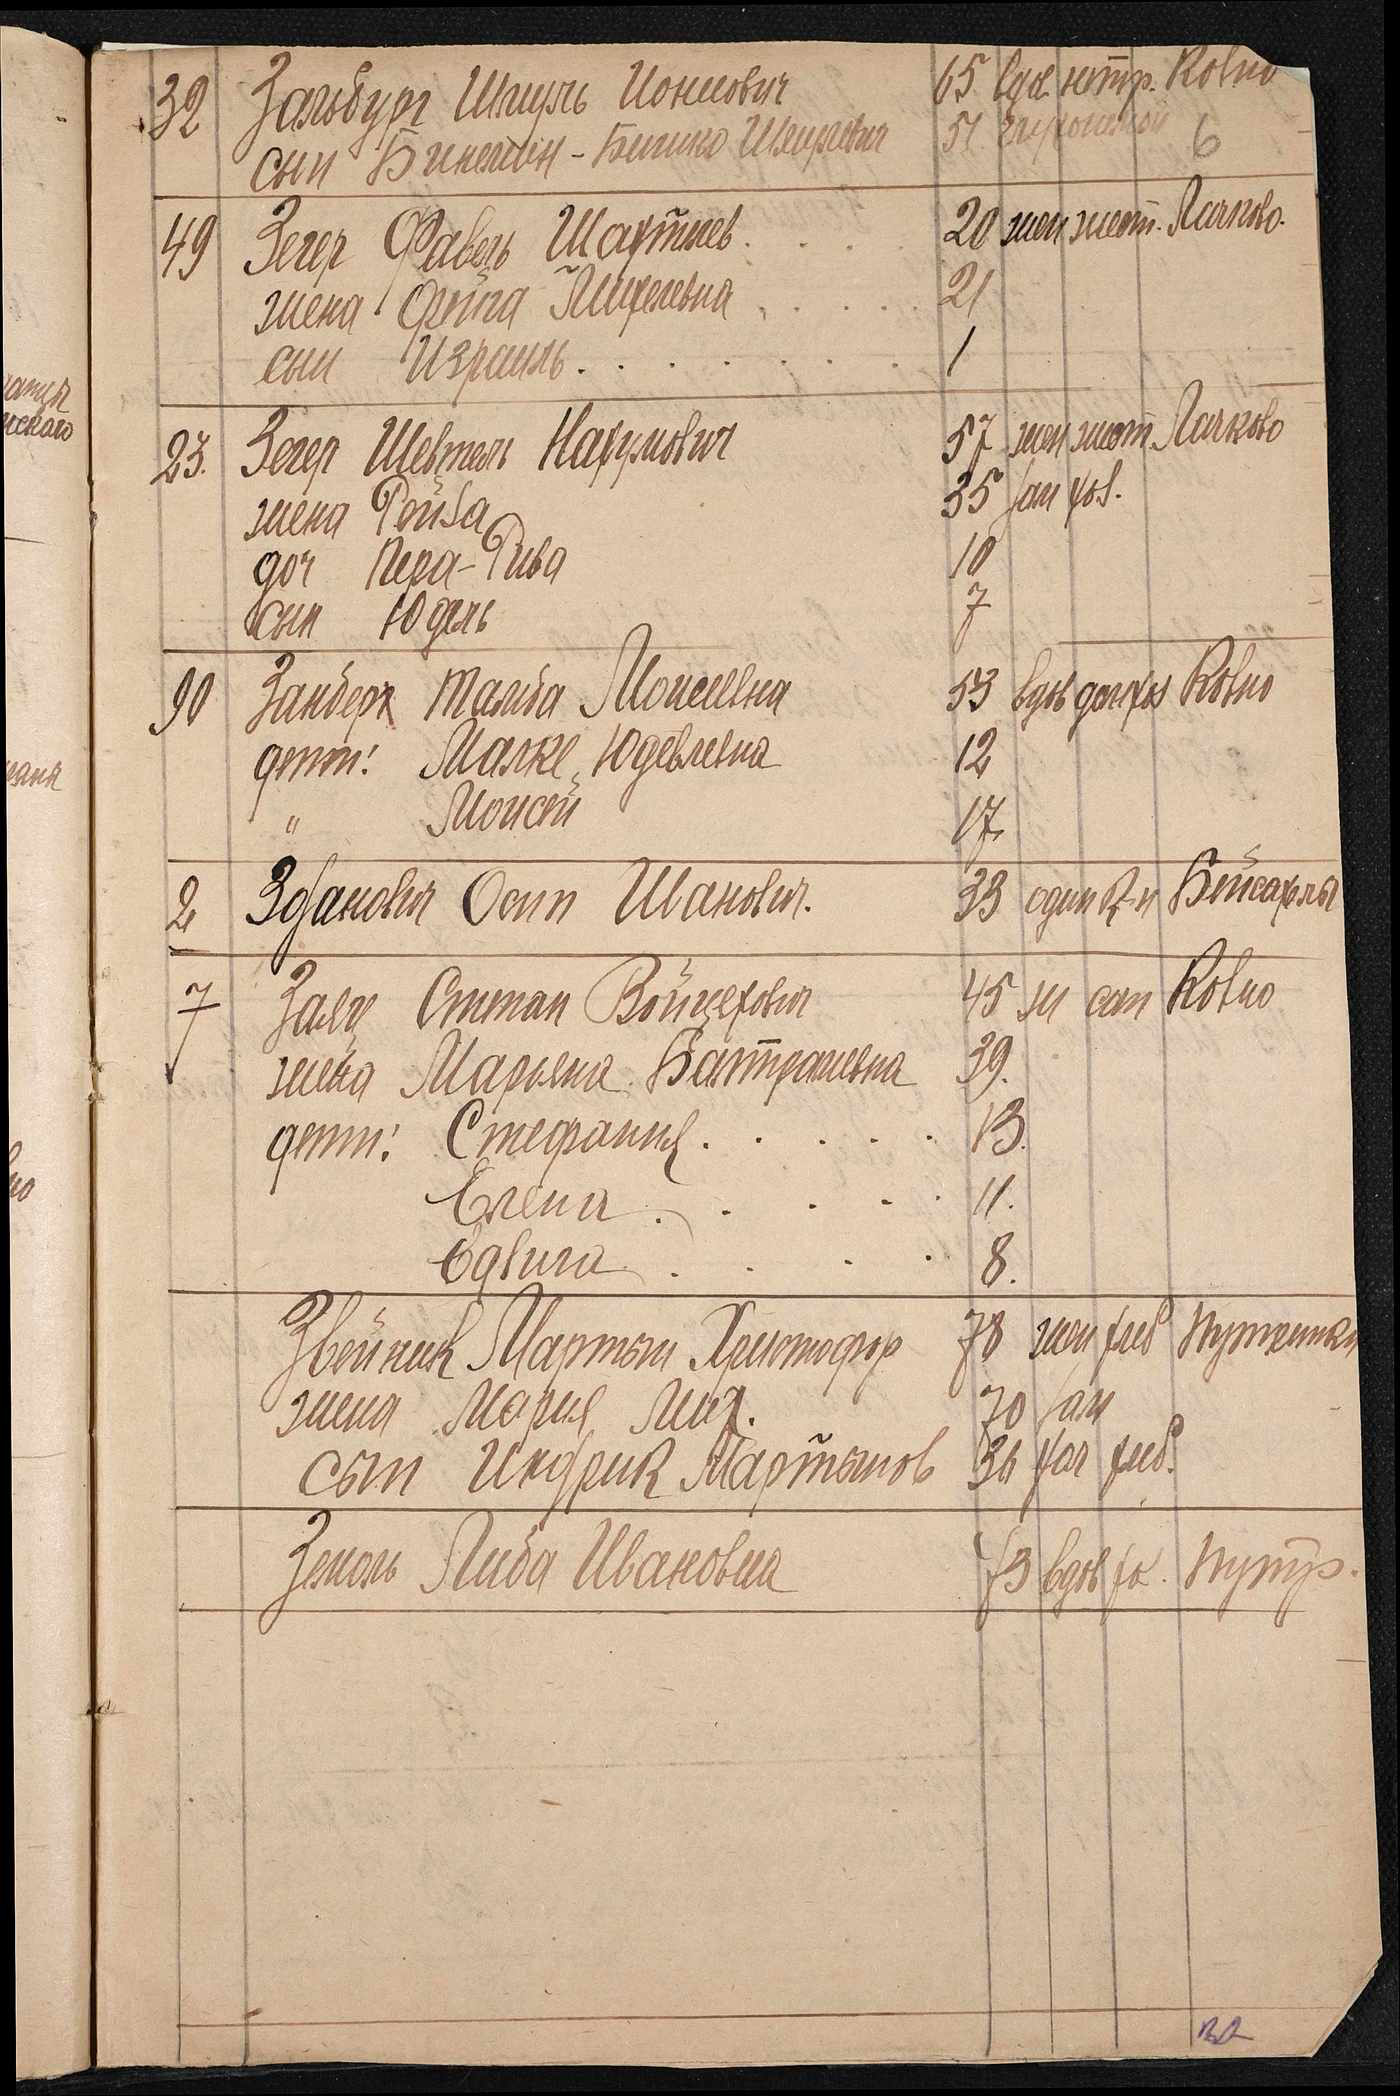 32 Зальбург Шмуль Ионисович 65 вдов нетр. Ковно
сын Бинемин - Бинико Шмулевич 51 глухонемой 6
49 Зегер Фавель Шахтиев. 20 жен жест. Лачково.
жена Фейга Михелевна 21
сын Израиль 1
23. Зегер Шевтель Нахумович 57 жен жест. Лачково
жена Ройза 35 зам хоз.
доч Пера-Рива 10
сын Юдель 7
90 Занберг Тамба Моисеевна 53 вдов дом хоз Ковно
дети: Малке Юделевна 12
" Моисей 17.
2 Зданович Осип Иванович. 33 один Бейсаголы
7 Заяц Степан Войцехович 45 ж сап Ковно
жена Марьяна 39.
дети: Стефания 13.
Елена 11.
Едвига 8.
Звейник Мартын Христофор 78 жен хлеб
жена Мария Мих. 70 зам
сын Индрик Мартынов 36 хол хлеб.
Земоль Либа Ивановна 73 вдов